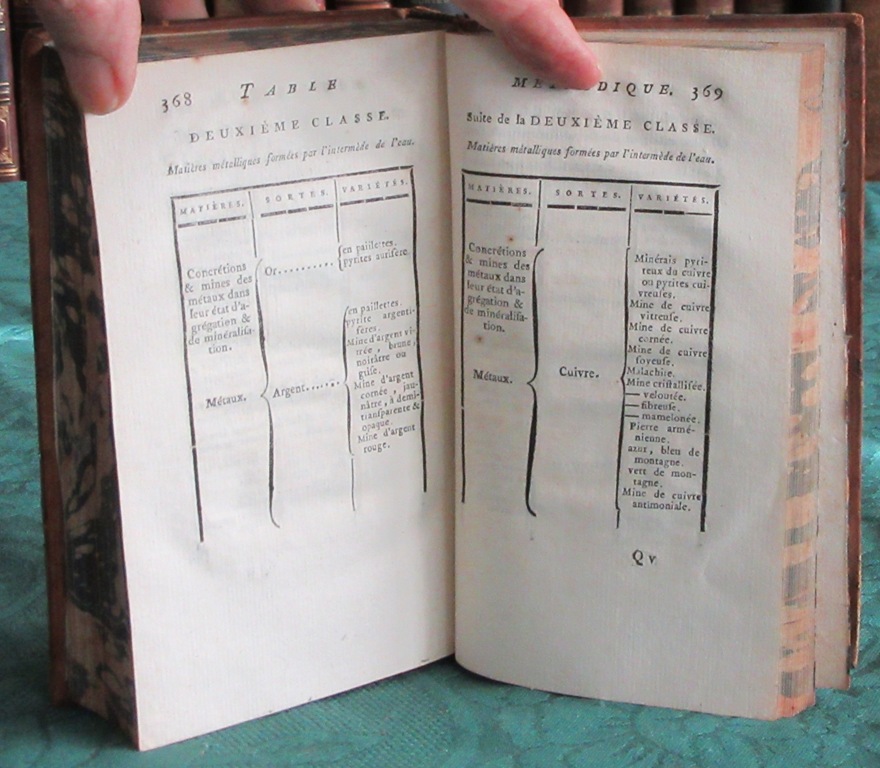 368 TABLE
DEUXIÈME CLASSE.
Matières métalliques formées par l'intermède de l'eau.
MATIÈRES. SORTES. VARIÉTÉS.
Concrétions
& mines des
métaux dans
leur état d'a-
grégation &
de minéralisa-
tion.
Métaux.
Or..........
en paillettes.
pyrites aurifère.
Argent.......
en paillettes.
pyrite argenti-
fères.
Mine d'argent vi-
trée, brune,
noirâtre ou
grise.
Mine d'argent
cornée, jau-
nâtre, à demi-
transparente &
opaque.
Mine d'argent
rouge.
DIQUE. 369
Suite de la DEUXIÈME CLASSE.
Matières métalliques formées par l'intermède de l'eau.
MATIÈRES. SORTES. VARIÉTÉS.
Concrétions
& mines des
métaux dans
leur état d'a-
grégation &
de minéralisa-
tion.
Métaux.
Cuivre.
Minérais pyri-
teux du cuivre
ou pyrites cui-
vreuses.
Mine de cuivre
vitreuse.
Mine de cuivre
cornée.
Mine de cuivre
soyeuse.
Malachite.
Mine cristallisée.
— veloutée.
— fibreuse.
— mamelonée.
Pierre armé-
nienne.
azur, bleu de
montagne.
vert de mon-
tagne.
Mine de cuivre
antimoniale.
Q v